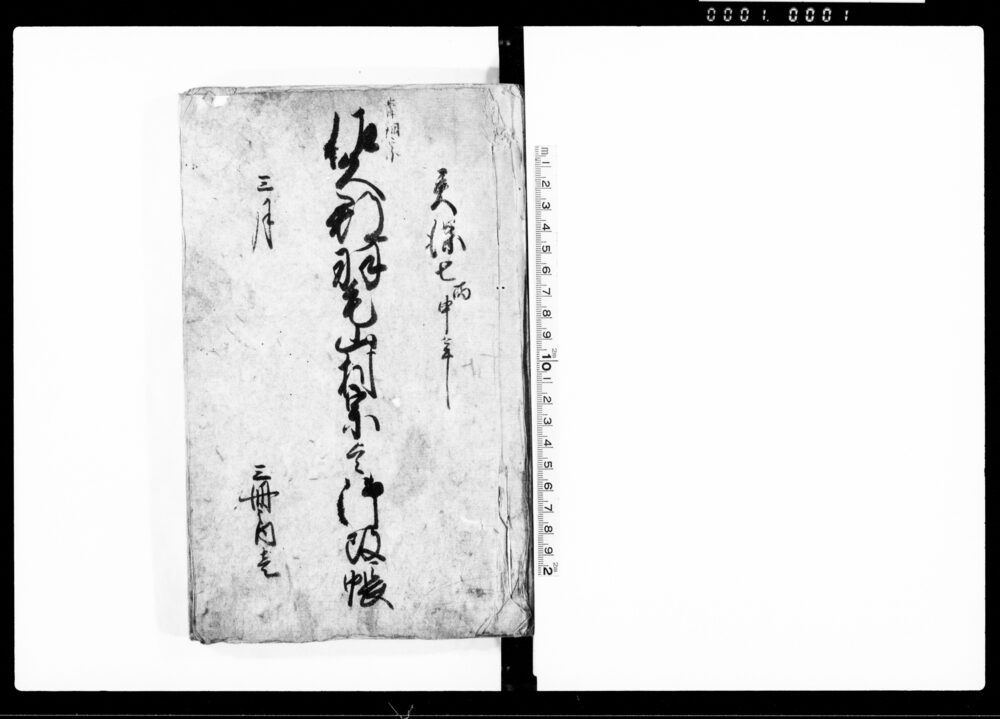 0001. 0001
天保七丙申年
佐久郡羽毛山村宗門御改帳
三月
三冊内壱
m 1 2 3 4 5 6 7 8 9 10 1 2 3 4 5 6 7 8 9 2